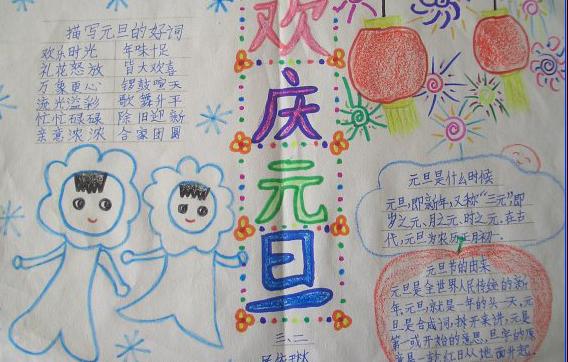 描写元旦的好词
欢乐时光 年味十足
礼花怒放 皆大欢喜
万象更心 锣鼓喧天
流光溢彩 歌舞升平
忙忙碌碌 除旧迎新
亲意浓浓 合家团圆
欢
庆
元
旦
三、二
元旦是什么时候
元旦,即新年,又称“三元”即
岁之元、月之元、时之元、在古
代,元旦为农历正月初一.
元旦节的由来
元旦是全世界人民传统的新
年,元旦就是一年的头一天,元
旦是合成词,拆开来讲,元是
第一或开始的意思,旦字的原
意是一轮红日从地面升起